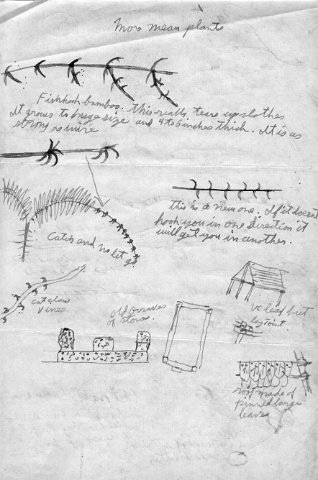 More mean plants
Fishhook bamboo. This really tears up clothes
It grows to huge size and 4 to 5 inches thick. It is as
strong as wire
this is a new one. If it doesnt
hook you in one direction it
will get you in another.
Catch and no let go
cat claw
vines
old graves
of stones.
roof made of
pinned large
leaves